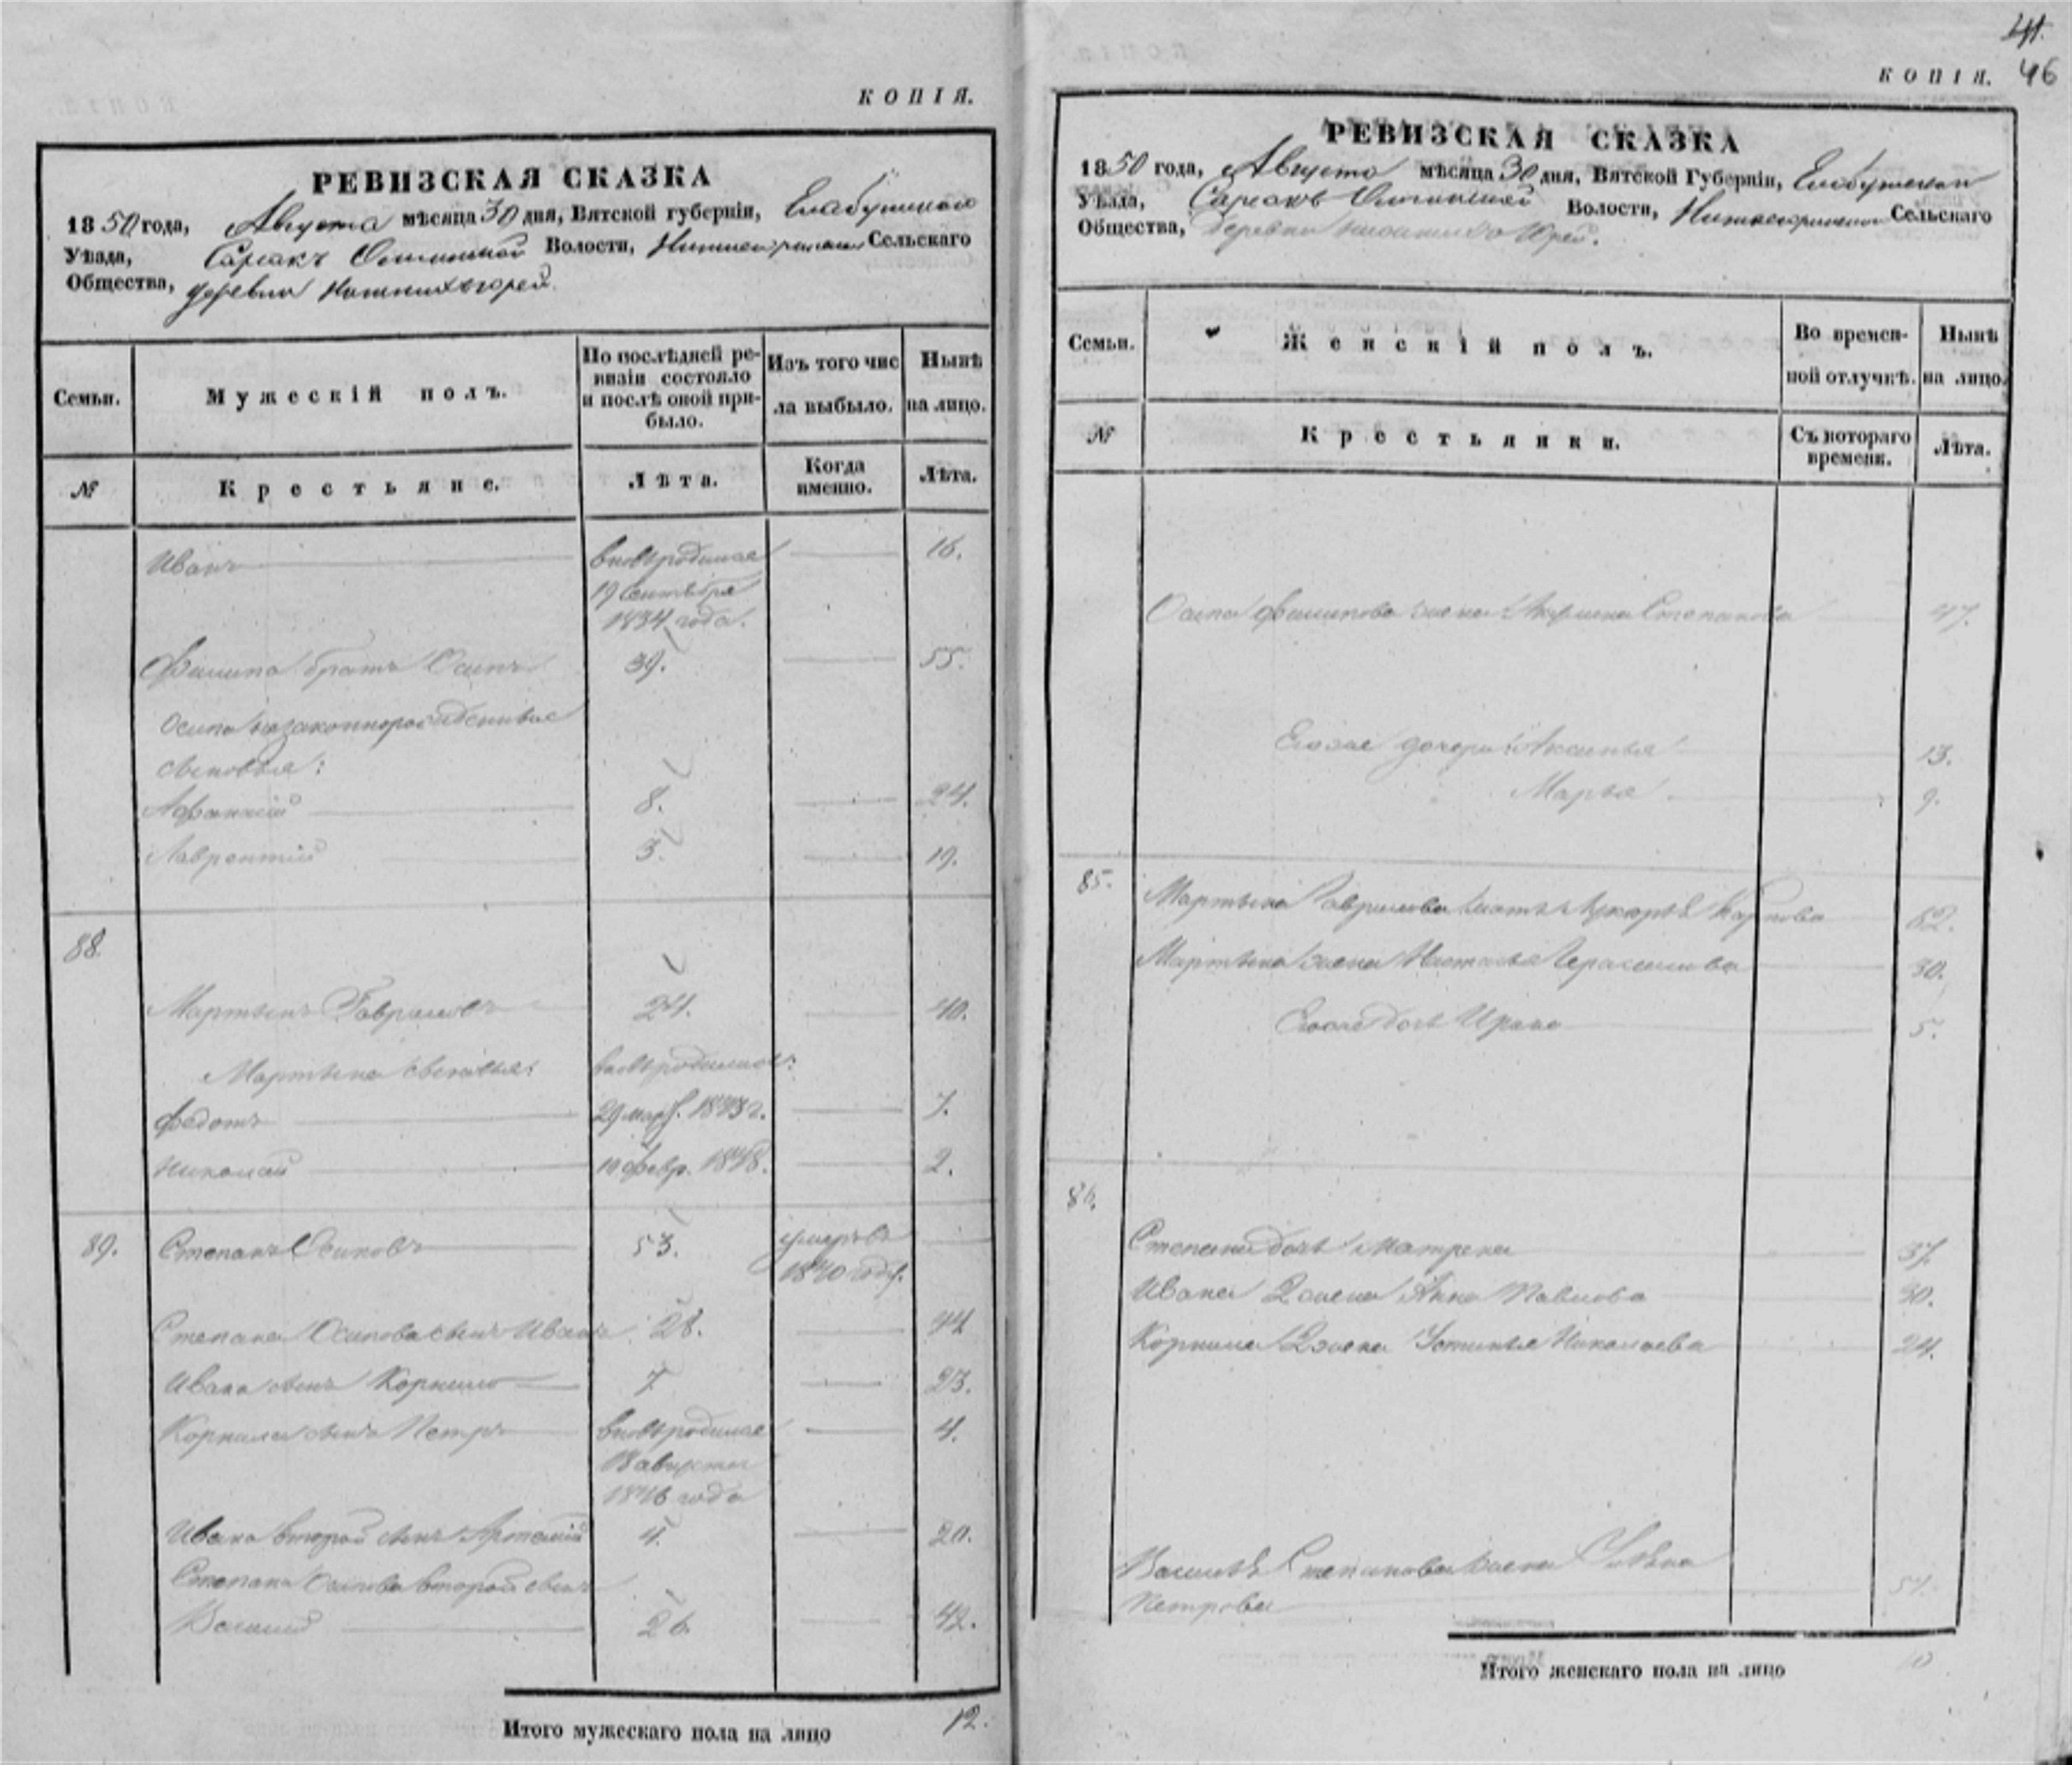 КОПІЯ.
РЕВИЗСКАЯ СКАЗКА
1850 года, Августа мѣсяца 30 дня, Вятской губерніи, Елабужскаго
Уѣзда, Волости, Сельскаго
Общества, деревни
Семьи. Мужескій полъ. По послѣдней ревизіи состояло и послѣ оной прибыло. Изъ того числа выбыло. Нынѣ на лицо.
№ Крестьяне. Лѣта. Когда именно. Лѣта.
Иванъ вновьрожденъ 16.
19 Сентября
1834 года.
Филипа братъ Осипъ 39. 55.
Осипа незаконнорожденные
сыновья:
Афанасій 8. 24.
Лаврентій 3. 19.
88.
Мартынъ Гавриловъ 24. 40.
Мартына сыновья:
Федотъ 29 мар. 1843 г. 7.
Николай 19 февр. 1848. 2.
89. Степанъ Осиповъ 53. умеръ въ
1840 году.
Степана Осипова сынъ Иванъ 28. 44
Ивана сынъ Корнило 7. 23.
Корнила сынъ Петръ 4.
18 августа
1846 года
Ивана второй сынъ Артемій 4. 20.
Степана Осипова второй сынъ
Василій 26. 42.
Итого мужескаго пола на лицо 12.
41.
КОПІЯ. 46
РЕВИЗСКАЯ СКАЗКА
1850 года, Августа мѣсяца 30 дня, Вятской Губерніи, Елабужскаго
Уѣзда, Волости, Сельскаго
Общества, деревни
Семьи. Женскій полъ. Во временной отлучкѣ. Нынѣ на лицо.
№ Крестьянки. Съ котораго времени. Лѣта.
Осипа Филипова жена Степанова 47.
Егоже дочери: Аксинья 13.
Марья 9.
85.
Мартына Гаврилова мать 62.
Мартына жена Настасья Герасимова 30.
Егоже дочь Ирина 5.
86.
Степана дочь Матрена 37.
Ивана жена Анна Павлова 30.
Корнила жена Устинья Николаева 24.
Василья Степанова жена
Петрова 51.
Итого женскаго пола на лицо 10